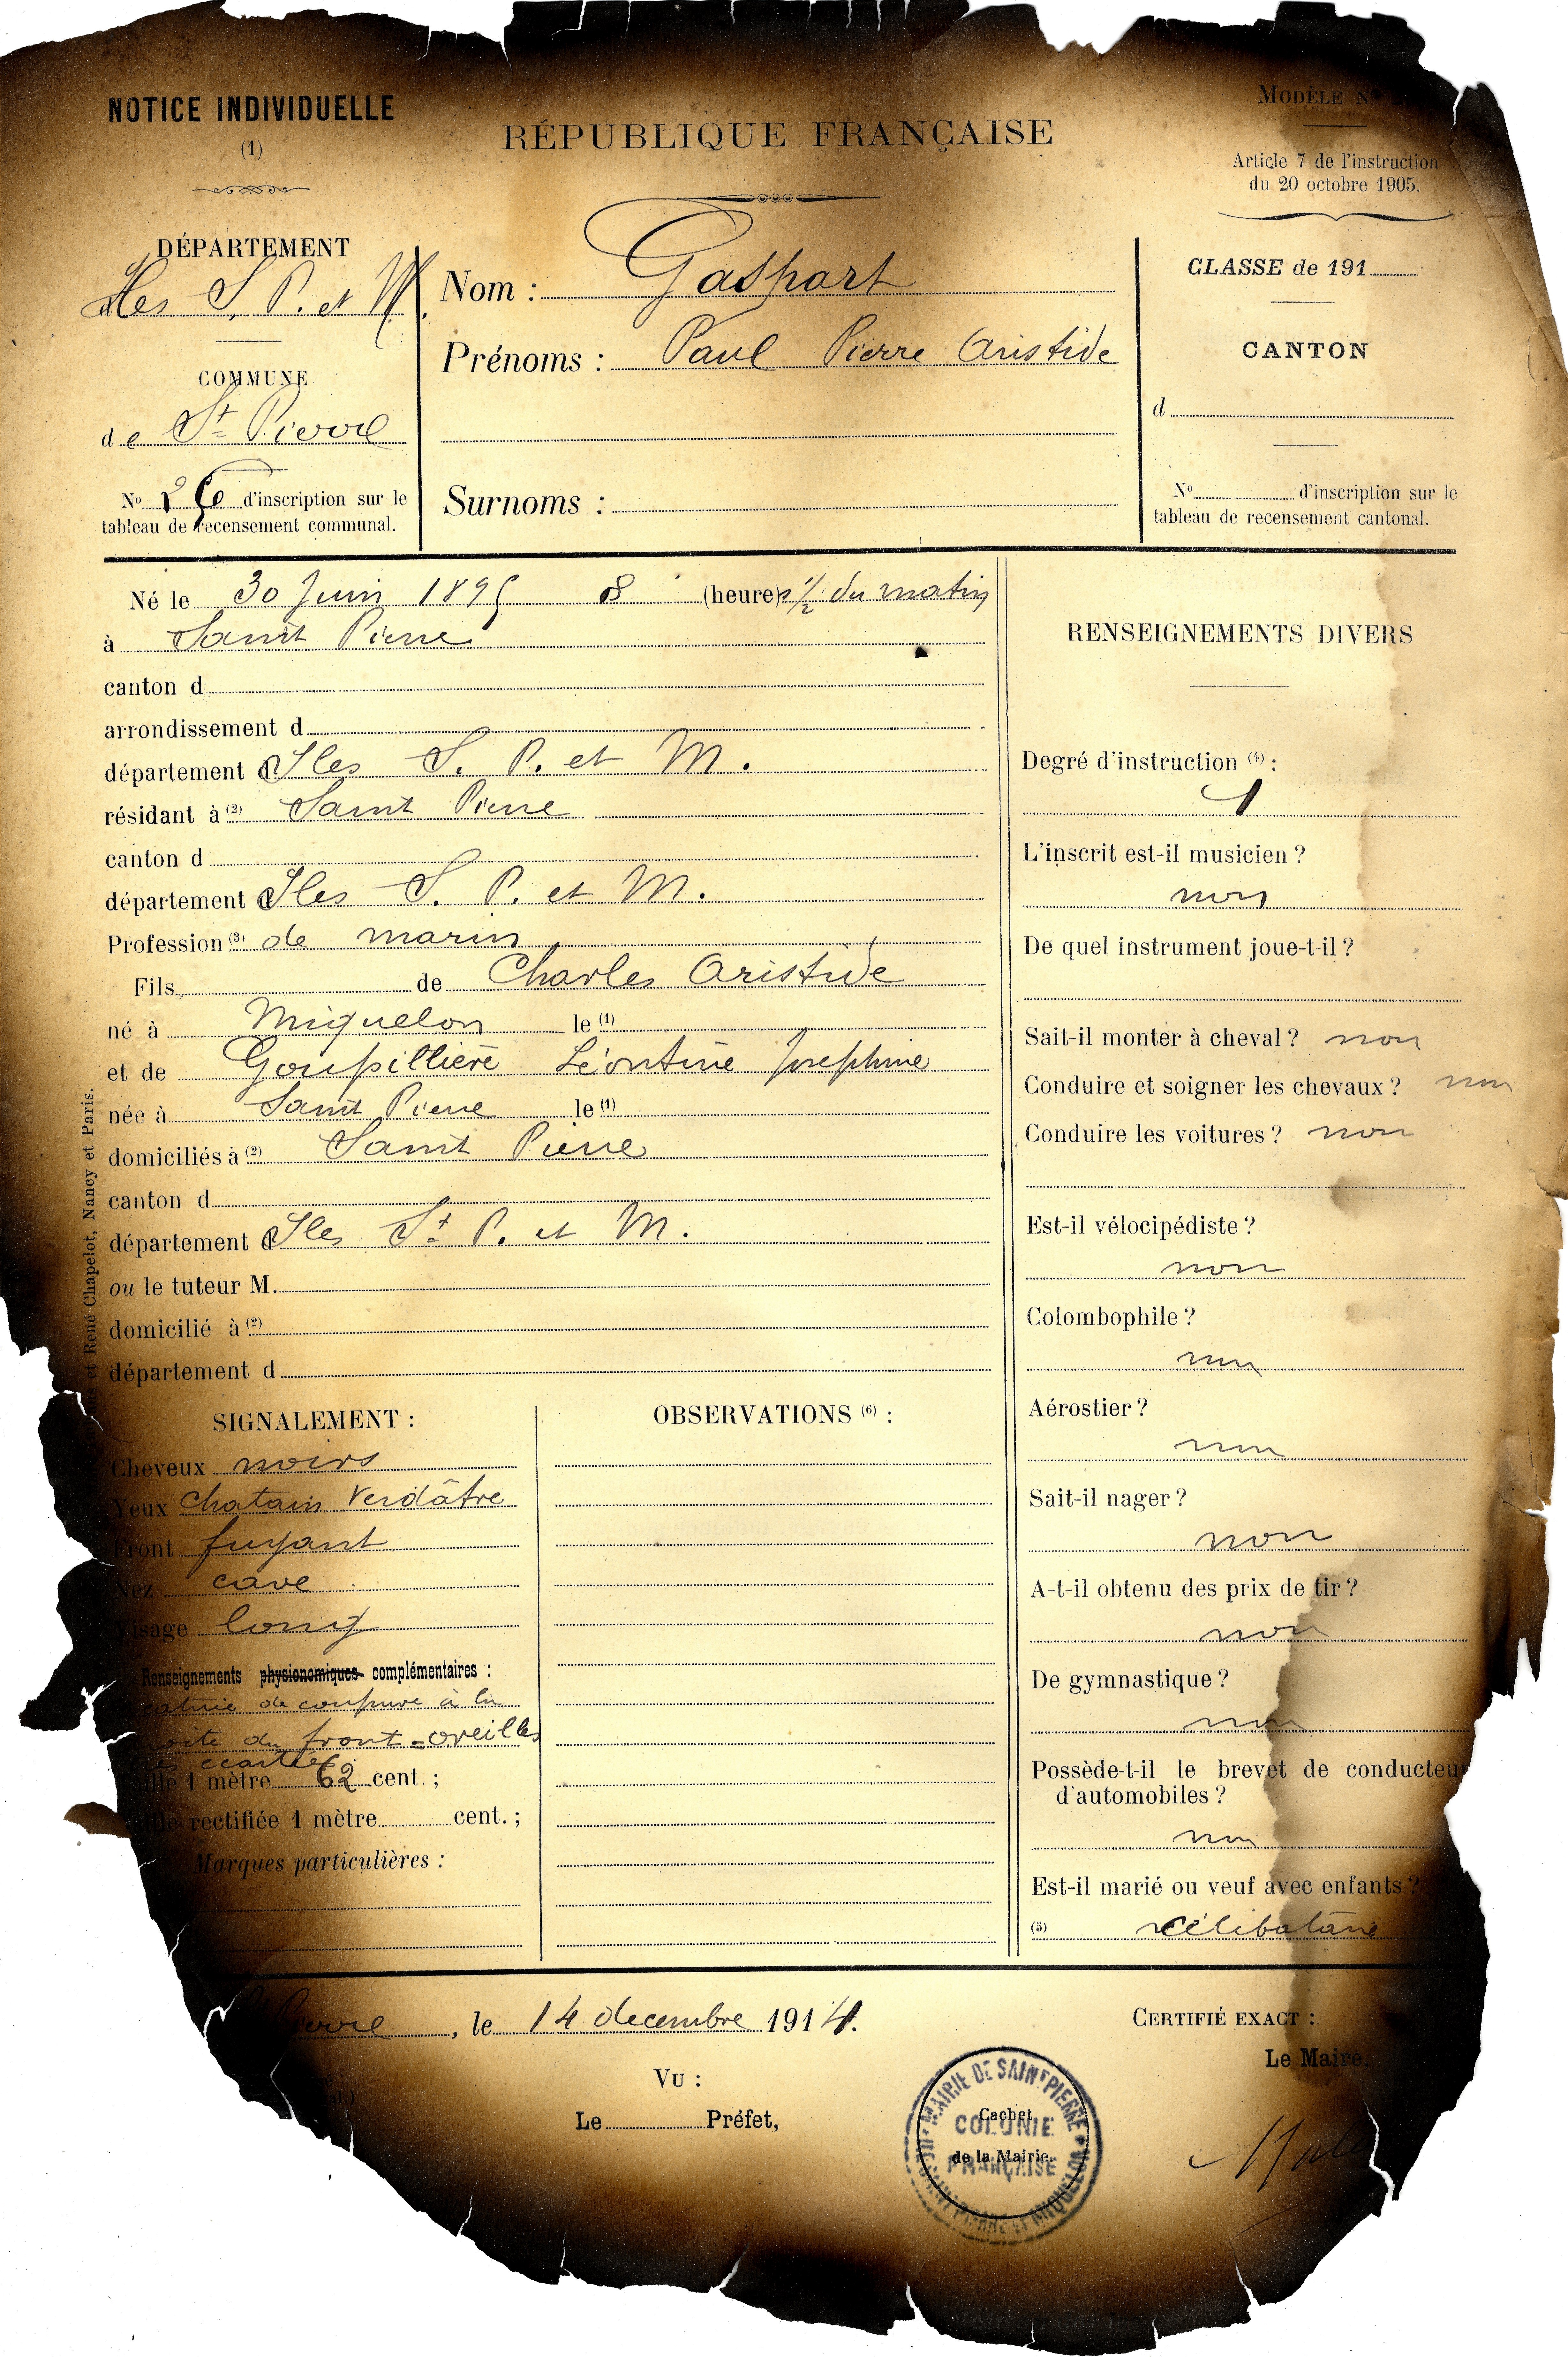 NOTICE INDIVIDUELLE
(1)
RÉPUBLIQUE FRANÇAISE
MODÈLE N
Article 7 de l'instruction
du 20 octobre 1905.
DÉPARTEMENT
Iles S. P. et M.
COMMUNE
de St Pierre
No d'inscription sur le
tableau de recensement communal.
Nom : Gaspart
Prénoms : Paul Pierre Aristide
Surnoms :
CLASSE de 191
CANTON
d
No d'inscription sur le
tableau de recensement cantonal.
Né le 30 Juin 1895 8 (heures) 1/2 du matin
à Saint Pierre
canton d
arrondissement d
département d Iles S. P. et M.
résidant à (2) Saint Pierre
canton d
département d Iles S. P. et M.
Profession (3) de marin
Fils de Charles Aristide
né à Miquelon le (1)
et de Goupillière Léontine Josephine
née à Saint Pierre le (1)
domiciliés à (2) Saint Pierre
canton d
département d Iles St P. et M.
ou le tuteur M.
domicilié à (2)
département d
SIGNALEMENT :
Cheveux noirs
Yeux Chatain Verdâtre
Front fuyant
Nez cave
Visage long
Renseignements physionomiques complémentaires :
de coupure à la
du front = oreilles
écartées
1 mètre 62 cent. ;
rectifiée 1 mètre cent. ;
Marques particulières :
OBSERVATIONS (6) :
RENSEIGNEMENTS DIVERS
Degré d'instruction (4) :
1
L'inscrit est-il musicien ?
non
De quel instrument joue-t-il ?
Sait-il monter à cheval ? non
Conduire et soigner les chevaux ? non
Conduire les voitures ? non
Est-il vélocipédiste ?
non
Colombophile ?
non
Aérostier ?
non
Sait-il nager ?
non
A-t-il obtenu des prix de tir ?
non
De gymnastique ?
non
Possède-t-il le brevet de conducteur
d'automobiles ?
non
Est-il marié ou veuf avec enfants ?
(5) célibataire
Pierre, le 14 decembre 1914.
VU :
Le Préfet,
CERTIFIÉ EXACT :
Le Maire,
MAIRIE DE SAINT PIERRE
COLONIE
FRANÇAISE
Cachet
de la Mairie.
et René Chapelot, Nancy et Paris.